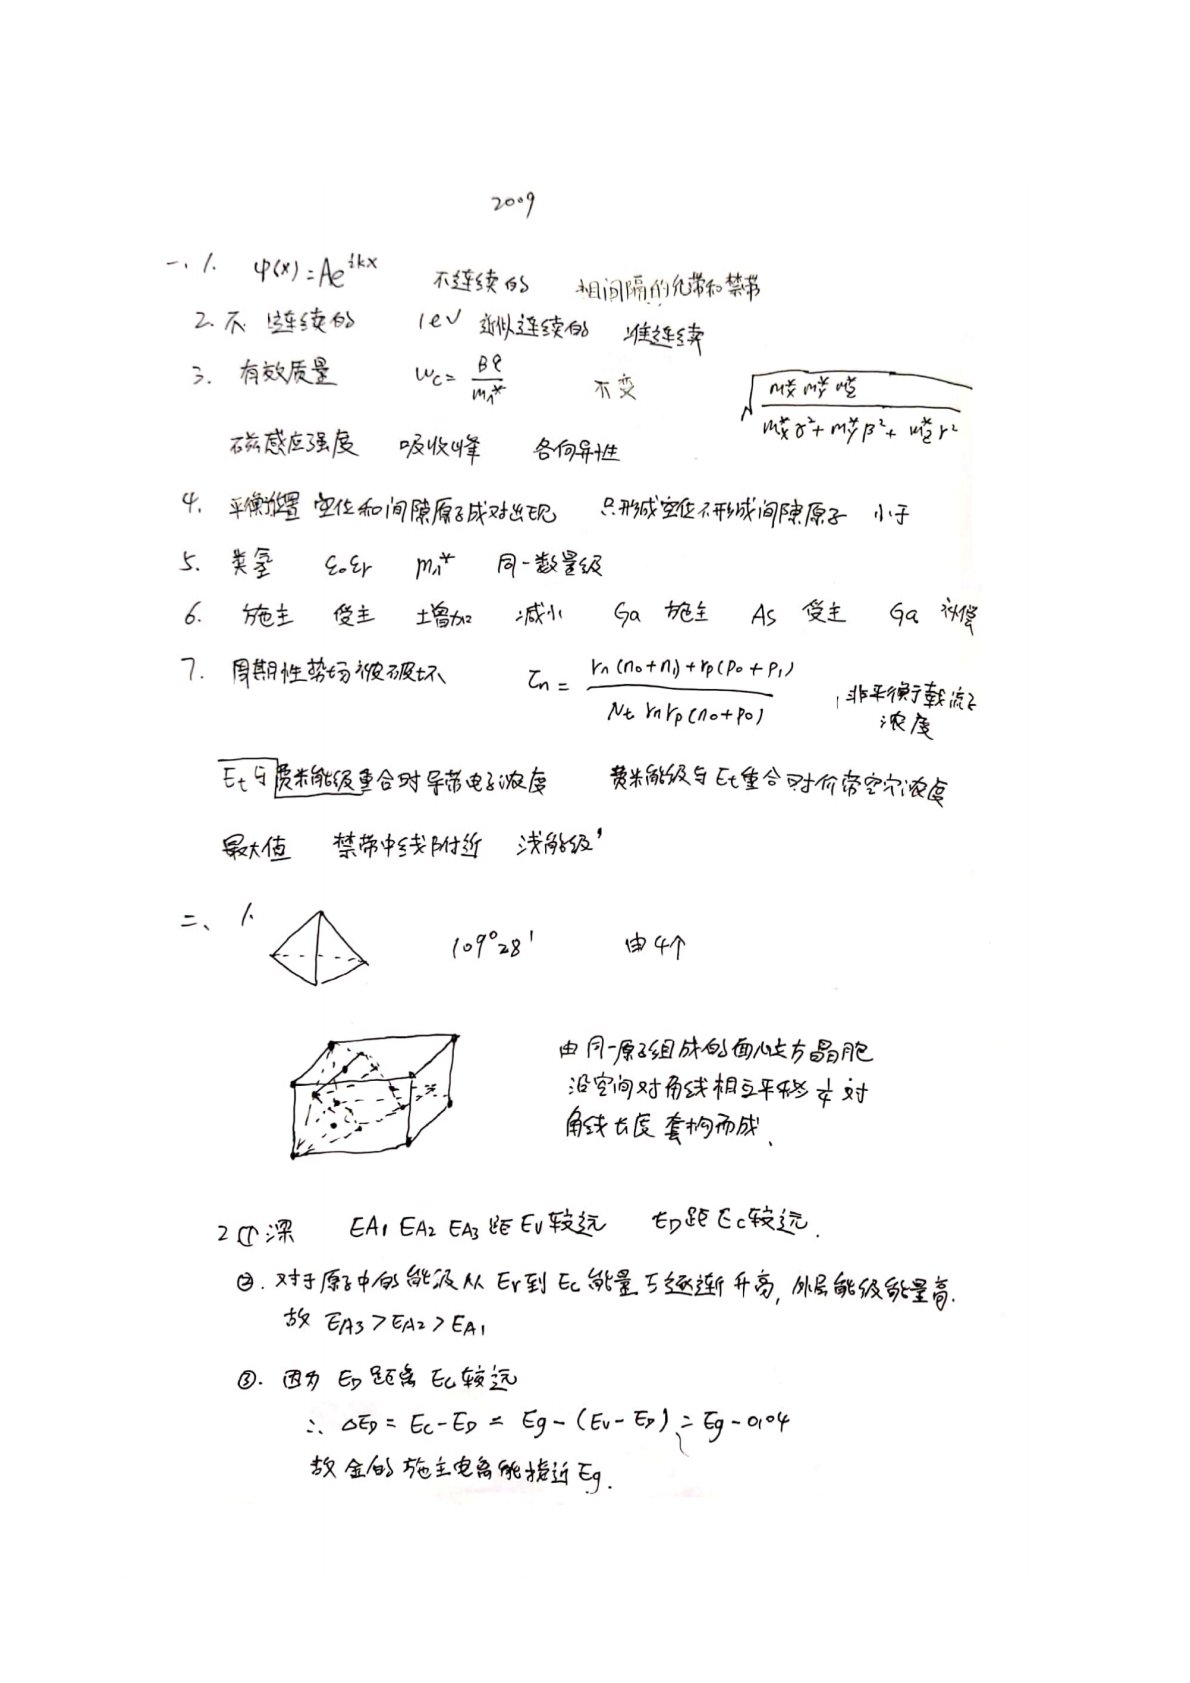 2009
一、1. φ(x)=Ae^{ikx} 不连续的 相间隔的允带和禁带
2. 不连续的 1eV 近似连续的 准连续
3. 有效质量 ωc = Bq/mn* 不变 √(mx* my* mz* / (mx*α²+my*β²+mz*γ²))
磁感应强度 吸收峰 各向异性
4. 平衡位置 空位和间隙原子成对出现 只形成空位不形成间隙原子 小于
5. 类氢 ε0εr mn* 同一数量级
6. 施主 受主 增加 减小 Ga 施主 As 受主 Ga 补偿
7. 周期性势场被破坏 τn = (rn(n0+n1)+rp(p0+p1)) / (Nt rn rp(n0+p0)) 非平衡载流子浓度
Et与费米能级重合时导带电子浓度 费米能级与Et重合时价带空穴浓度
最大值 禁带中线附近 浅能级
二、1. 109°28′ 由4个
由同一原子组成的面心立方晶胞
沿空间对角线相互平移1/4对
角线长度套构而成.
2 ① 深 EA1 EA2 EA3 距 Ev较远 ED距Ec较远.
②. 对于原子中的能级从Ev到Ec能量逐渐升高, 外层能级能量高.
故 EA3>EA2>EA1
③. 因为 ED距离Ec较远
∴ ΔED = Ec-ED = Eg-(Ev-ED) = Eg-0.04
故金的施主电离能接近Eg.